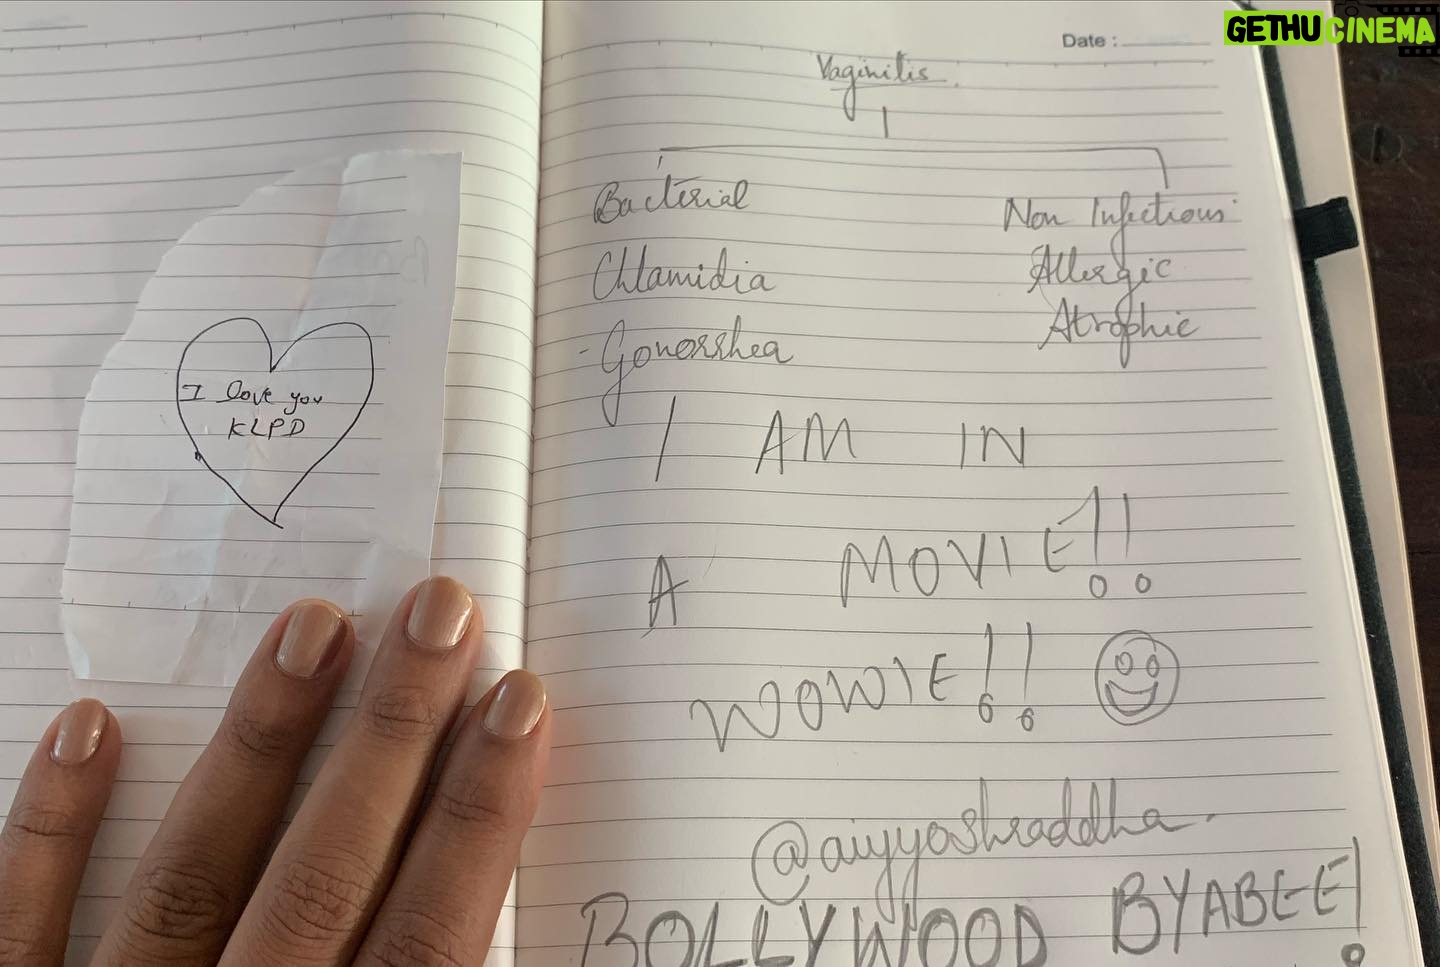 GETHU CINEMA
Date :
Vaginitis.
Bacterial
Chlamidia
- Gonorrhea
Non Infectious
Allergic
Atrophic
I love you
KLPD
I AM IN
A MOVIE!!
WOWIE!!
@aiyyoshraddha.
BOLLYWOOD BYABEE!